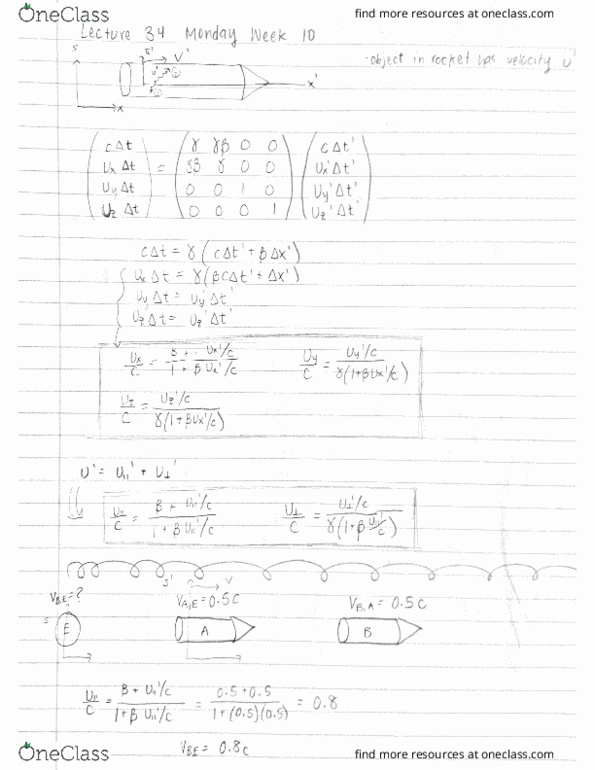 OneClass find more resources at oneclass.com
Lecture 34 Monday Week 10
s s' v'
-object in rocket has velocity u'
u' x'
x
cΔt γ γβ 0 0 cΔt'
Ux Δt = γβ γ 0 0 Ux'Δt'
Uy Δt 0 0 1 0 Uy'Δt'
Uz Δt 0 0 0 1 Uz'Δt'
cΔt = γ(cΔt' + βΔx')
Ux Δt = γ(βcΔt' + Δx')
Uy Δt = Uy'Δt'
Uz Δt = Uz'Δt'
Ux/c = β + Ux'/c / 1 + β Ux'/c Uy/c = Uy'/c / γ(1+βUx'/c)
Uz/c = Uz'/c / γ(1+βUx'/c)
U' = U11' + U⊥'
U11/c = β + U11'/c / 1 + β U11'/c U⊥/c = U⊥'/c / γ(1+β U11'/c)
s' v
VBE = ? VA,E = 0.5c VB,A = 0.5c
s E A B
U11/c = β + U11'/c / 1+β U11'/c = 0.5+0.5 / 1+(0.5)(0.5) = 0.8
VBE = 0.8c
OneClass find more resources at oneclass.com